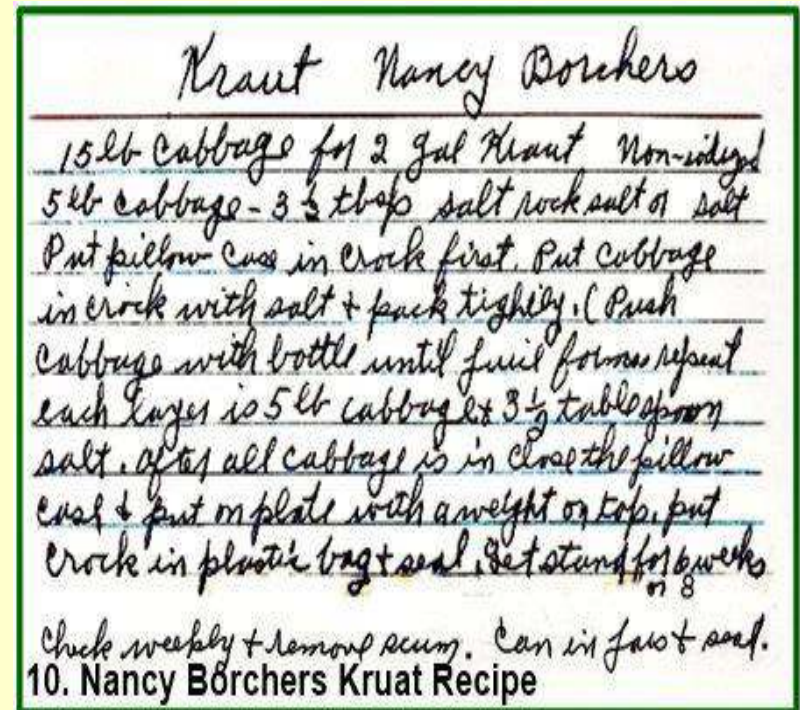 Kraut Nancy Borchers
15 lb Cabbage for 2 gal Kraut Non-iodized
5 lb cabbage - 3 ½ tbsp salt rock salt or salt
Put pillow case in crock first. Put cabbage
in crock with salt + pack tightly. ( Push
cabbage with bottle until juice forms repeat
each layer is 5 lb cabbage & 3 ½ tablespoon
salt. After all cabbage is in close the pillow
case & put on plate with a weight on top. put
crock in plastic bag + seal. Let stand for 6 weeks
or 8
Check weekly + remove scum. Can in jars & seal.
10. Nancy Borchers Kruat Recipe